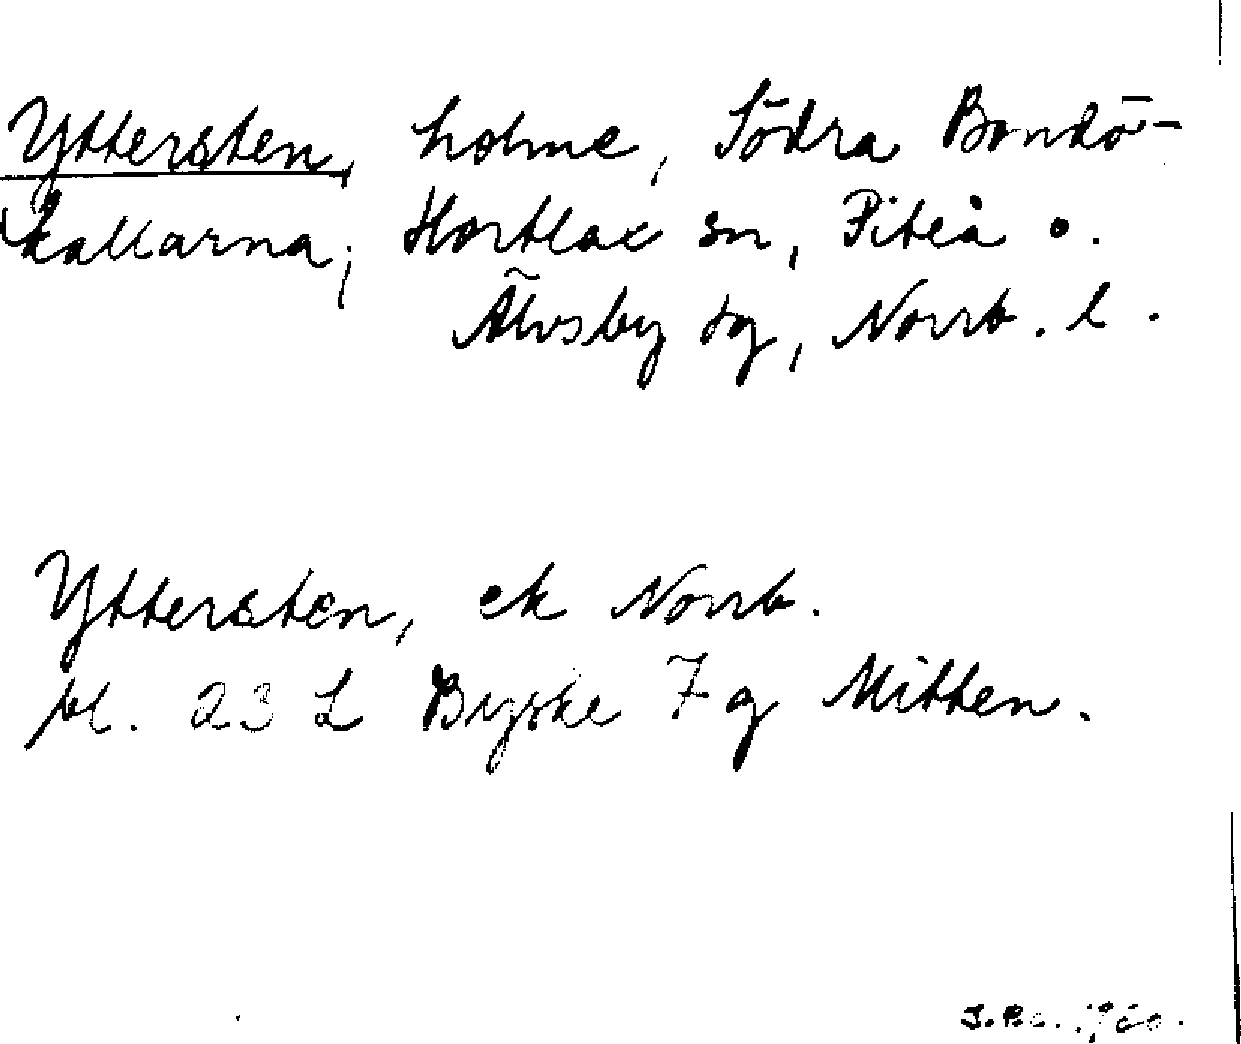 Yttersten, holme, Södra Bondö-
kallarna; Hortlax sn, Piteå o.
Älvsby dg, Norrb. l.
Yttersten, ek Norrb.
bl. 23 L Byske 7 g Mitten.
1960.